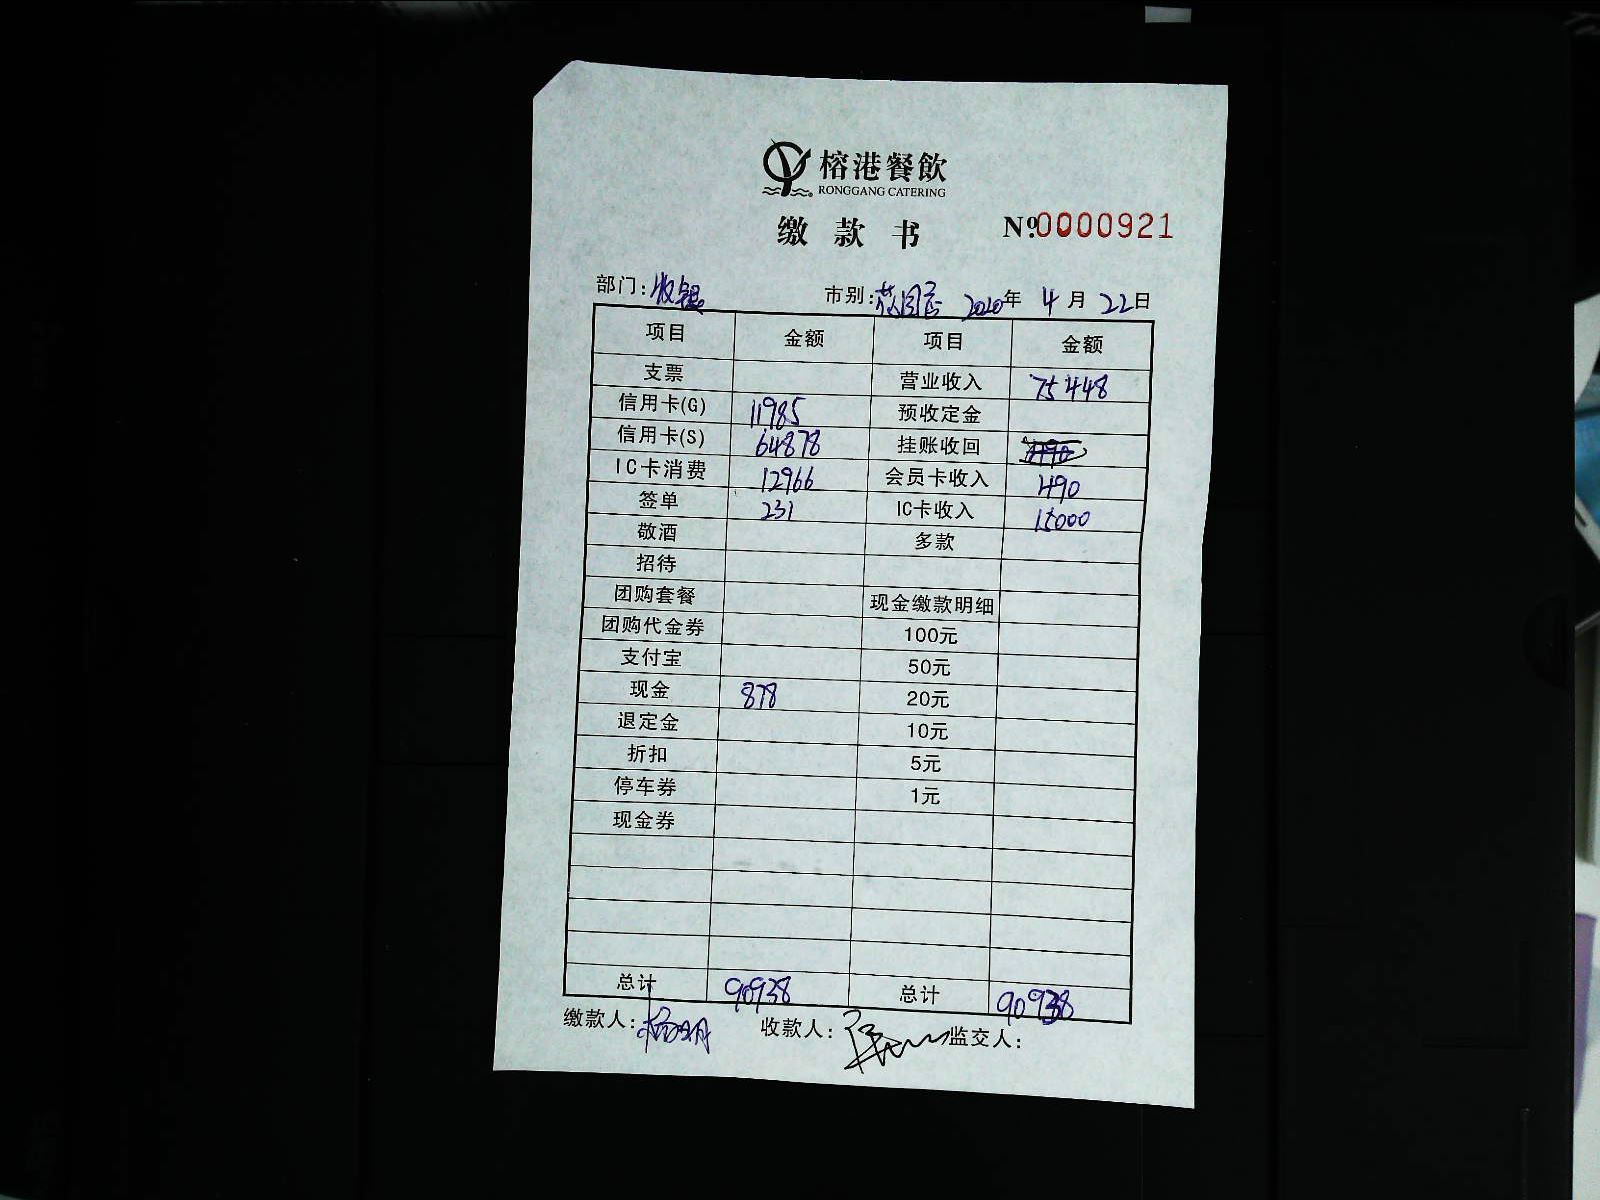 榕港餐飲
RONGGANG CATERING
缴款书 Nº0000921
部门:收银 市别: 2020年4月22日
项目 金额 项目 金额
支票 营业收入 75448
信用卡(G) 11985 预收定金
信用卡(S) 64878 挂账收回
IC卡消费 12966 会员卡收入 490
签单 231 IC卡收入 15000
敬酒 多款
招待
团购套餐 现金缴款明细
团购代金券 100元
支付宝 50元
现金 878 20元
退定金 10元
折扣 5元
停车券 1元
现金券
总计 90938 总计 90938
缴款人: 收款人: 监交人: